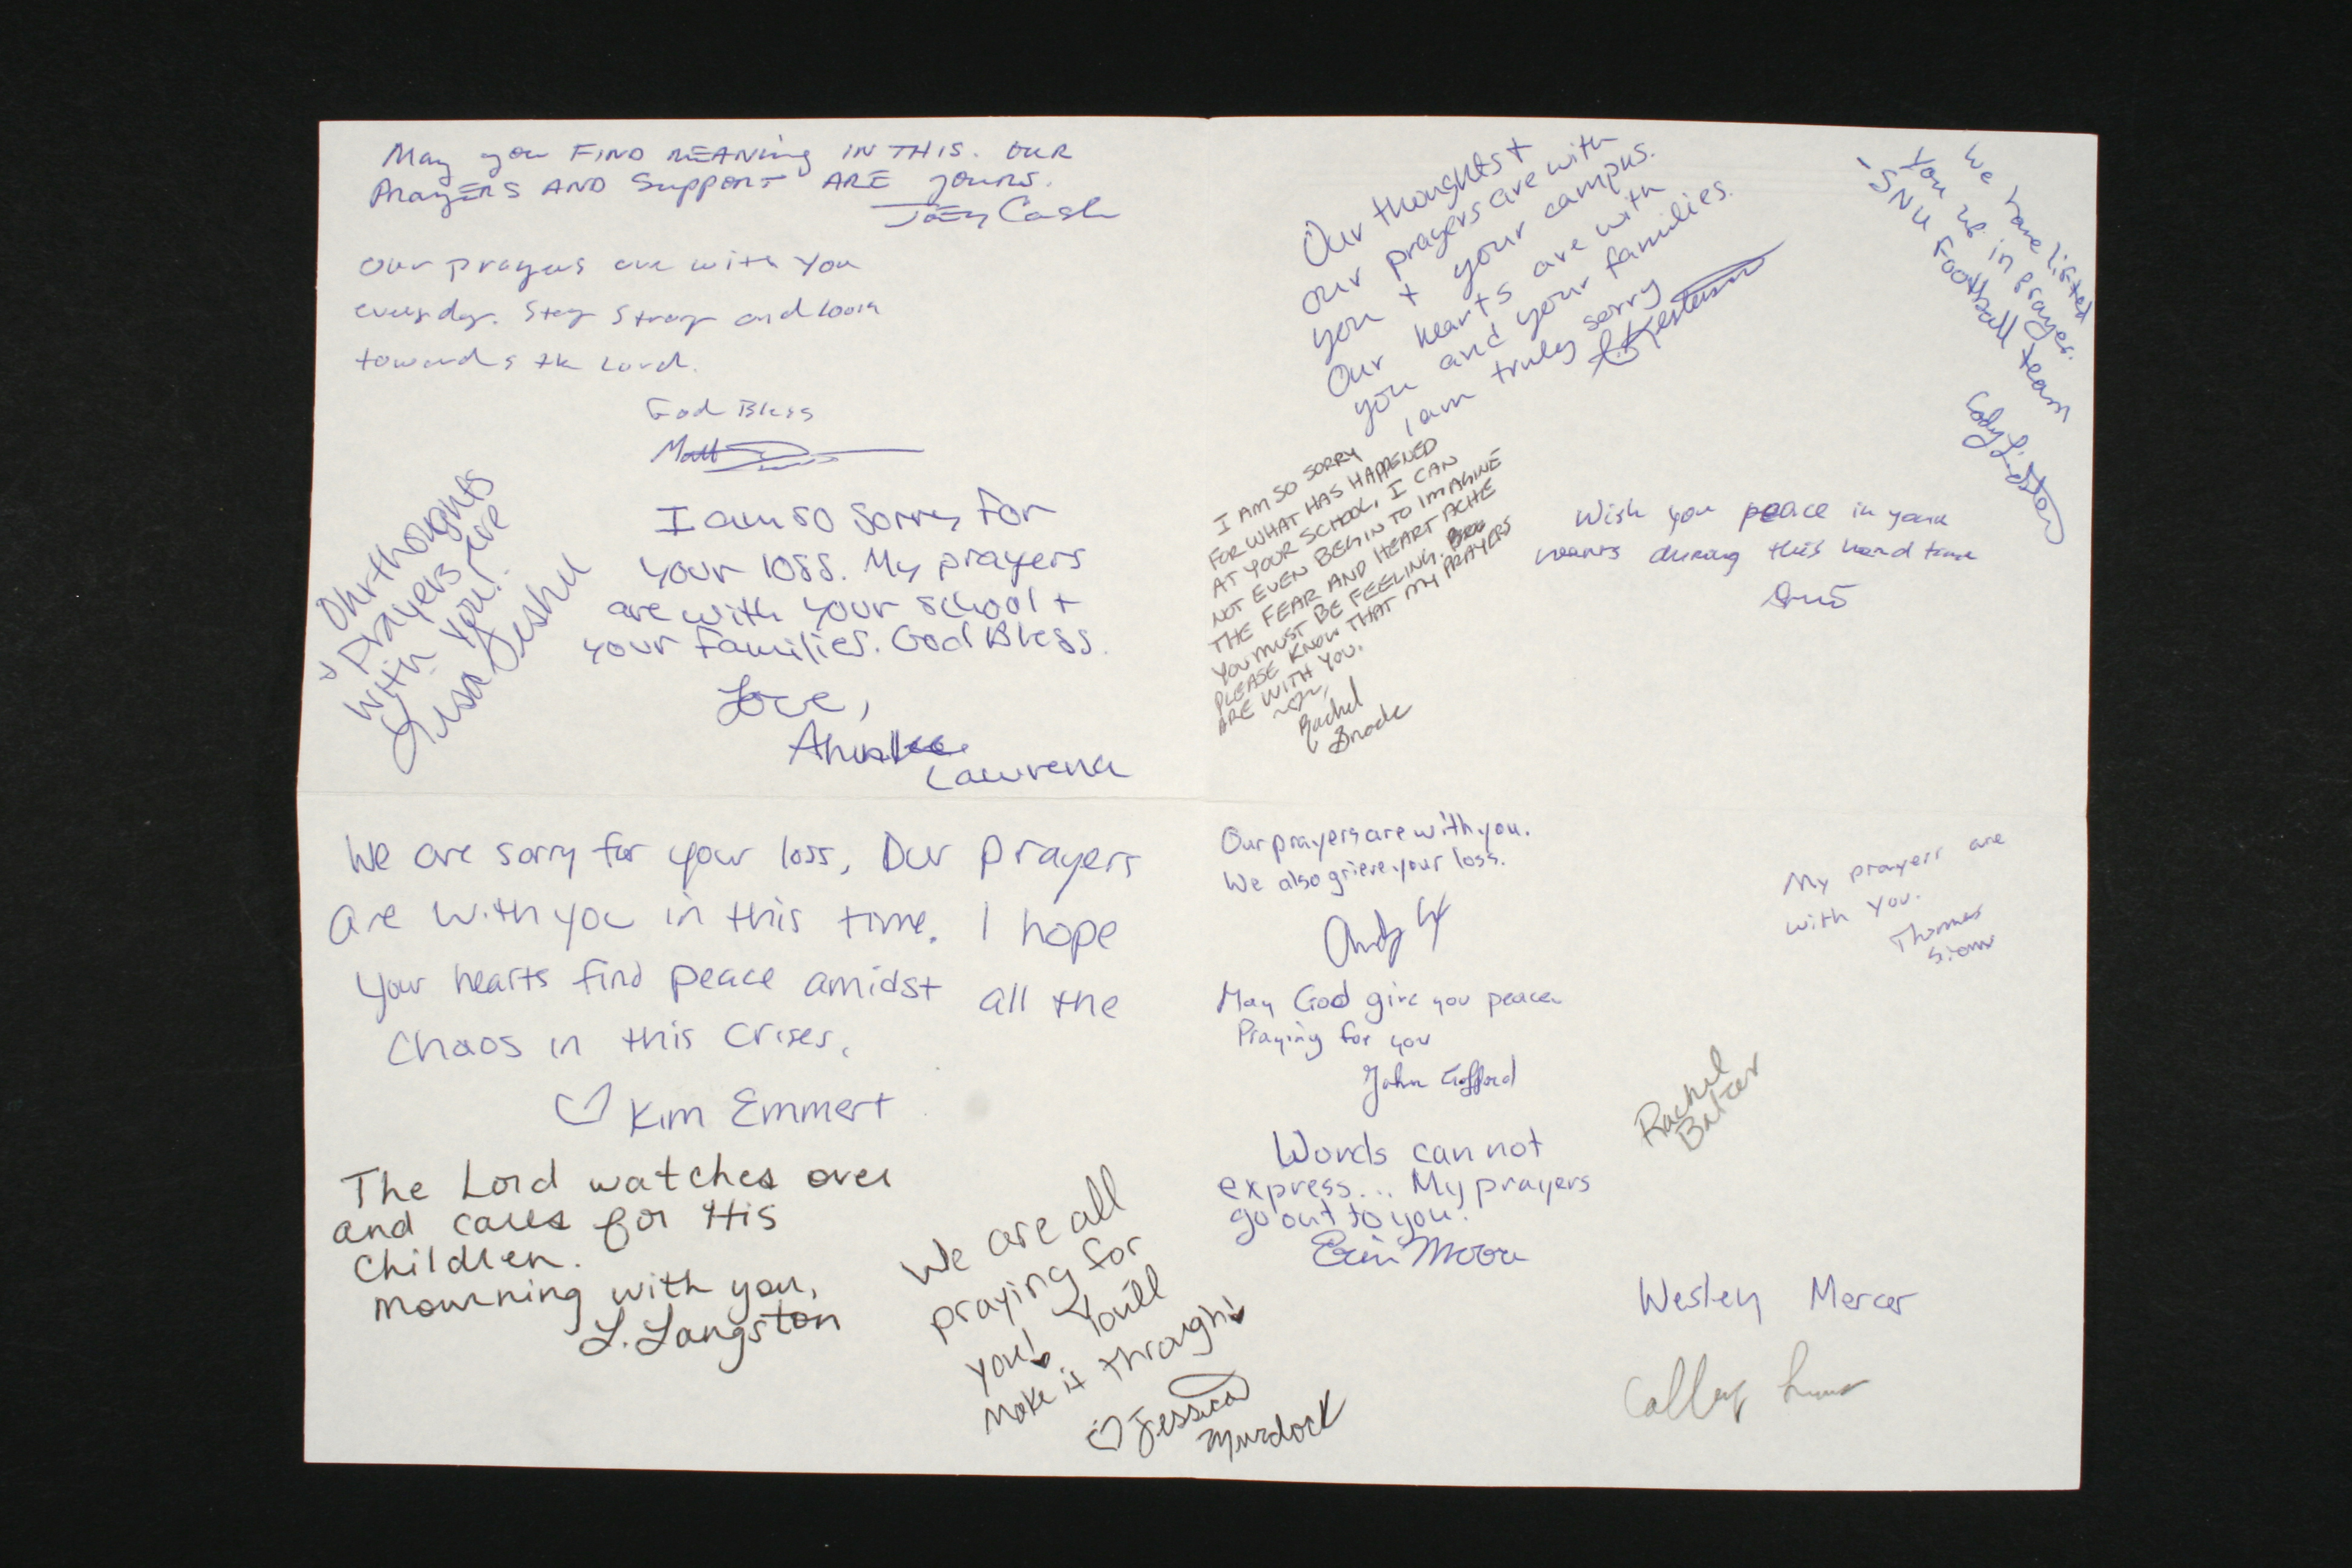 May you FIND MEANing IN THIS. OUR
PrayERS AND Support ARE yours.
Joey Cash
Our prayers are with You
everyday. Stay Strong and look
towards the Lord.
God Bless
Matt
Our thoughts
& Prayers are
with You!
Lisa
I am so sorry for
your loss. My prayers
are with your school +
your families. God Bless.
Love,
We are sorry for your loss, Our prayers
are with you in this time. I hope
your hearts find peace amidst all the
chaos in this crises.
♡ Kim Emmert
The Lord watches over
and cares for His
children.
Mourning with you,
L. Langston
We are all
praying for
you! You'll
make it through!
♡ Jessica
Murdock
Our thoughts +
our prayers are with
you + your campus.
Our hearts are with
you and your families.
I am truly sorry
We have lifted
you up in prayer.
SNU Football team
Cody
I AM SO SORRY
FOR WHAT HAS HAPPENED
AT YOUR SCHOOL, I CAN
NOT EVEN BEGIN TO IMAGINE
THE FEAR AND HEART ACHE
YOU MUST BE FEELING.
PLEASE KNOW THAT MY PRAYERS
ARE WITH YOU.
Rachel
Wish you peace in your
hearts during this hard time
Our prayers are with you.
We also grieve your loss.
Andy
May God give you peace.
Praying for you
John Gifford
Words can not
express... My prayers
go out to you!
Erin Moore
My prayers are
with you.
Thomas
Rachel
Balzer
Wesley Mercer